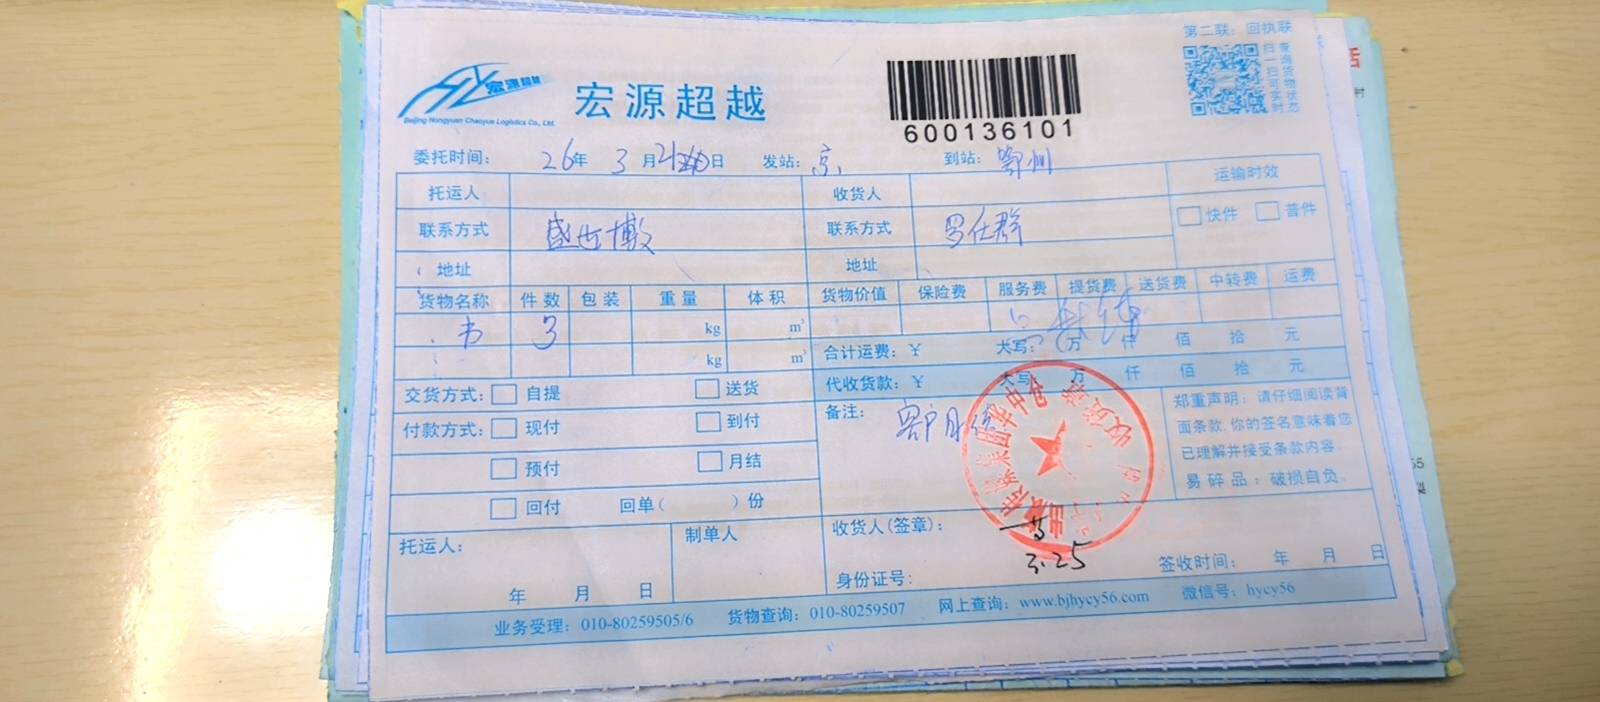 第二联：回执联
扫一扫可实时
查询货物状态
宏源超越
Beijing Hongyuan Chaoyue Logistics Co., Ltd.
宏源超越
600136101
委托时间： 26年 3月 日 发站：京 到站：鄂州
托运人 收货人 运输时效
联系方式 盛世博 联系方式 罗仕群 快件 普件
地址 地址
货物名称 件数 包装 重量 体积 货物价值 保险费 服务费 提货费 送货费 中转费 运费
书 3 kg m³
kg m³ 合计运费：￥ 大写： 万 仟 佰 拾 元
交货方式： 自提 送货 代收货款：￥ 大写 万 仟 佰 拾 元
付款方式： 现付 到付 备注： 客户月结
预付 月结
回付 回单（ ）份
郑重声明：请仔细阅读背
面条款，你的签名意味着您
已理解并接受条款内容。
易碎品：破损自负。
托运人： 制单人 收货人（签章）：
3.25
年 月 日 身份证号： 签收时间： 年 月 日
业务受理：010-80259505/6 货物查询：010-80259507 网上查询：www.bjhycy56.com 微信号：hycy56